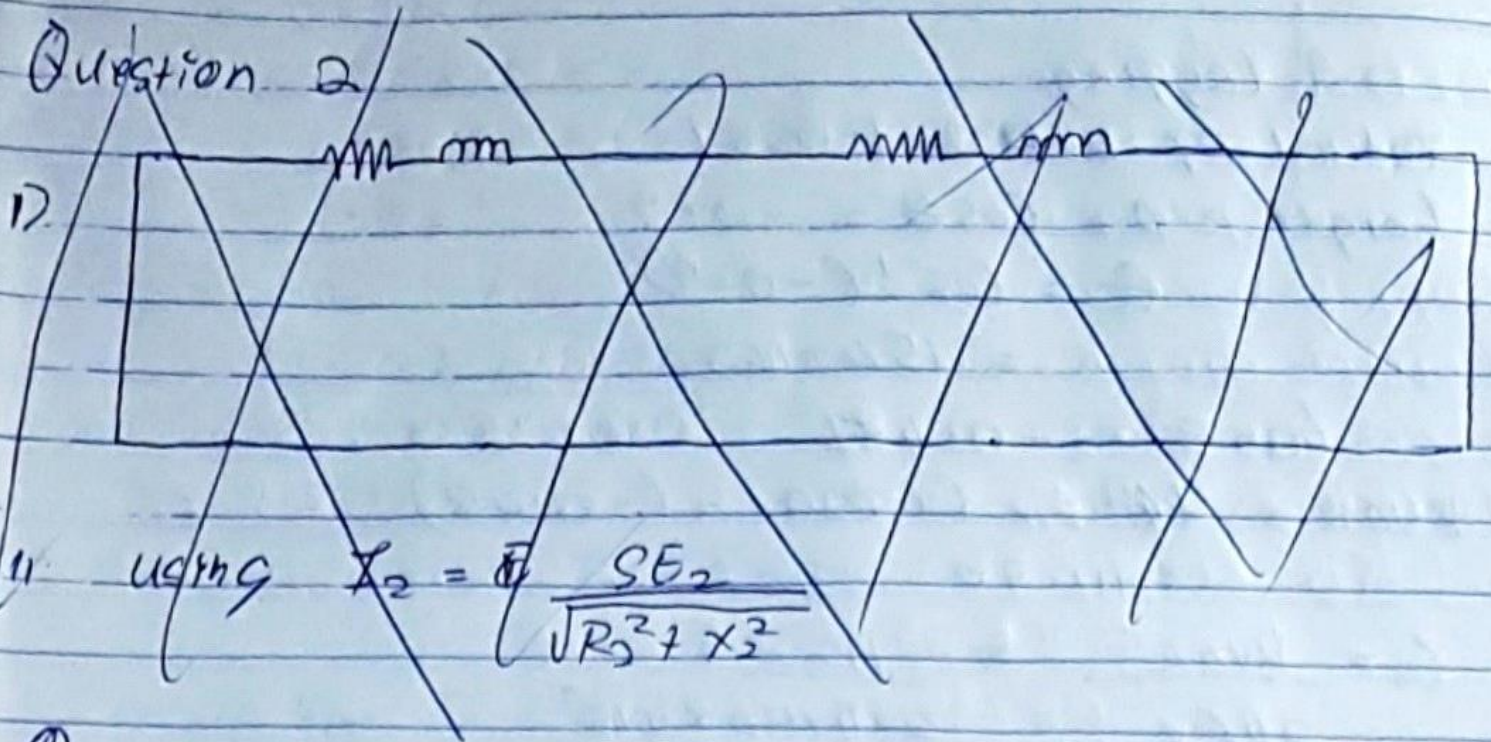 Question 2
1).
11 using I₂ = SE₂ / √R₂² + X₂²